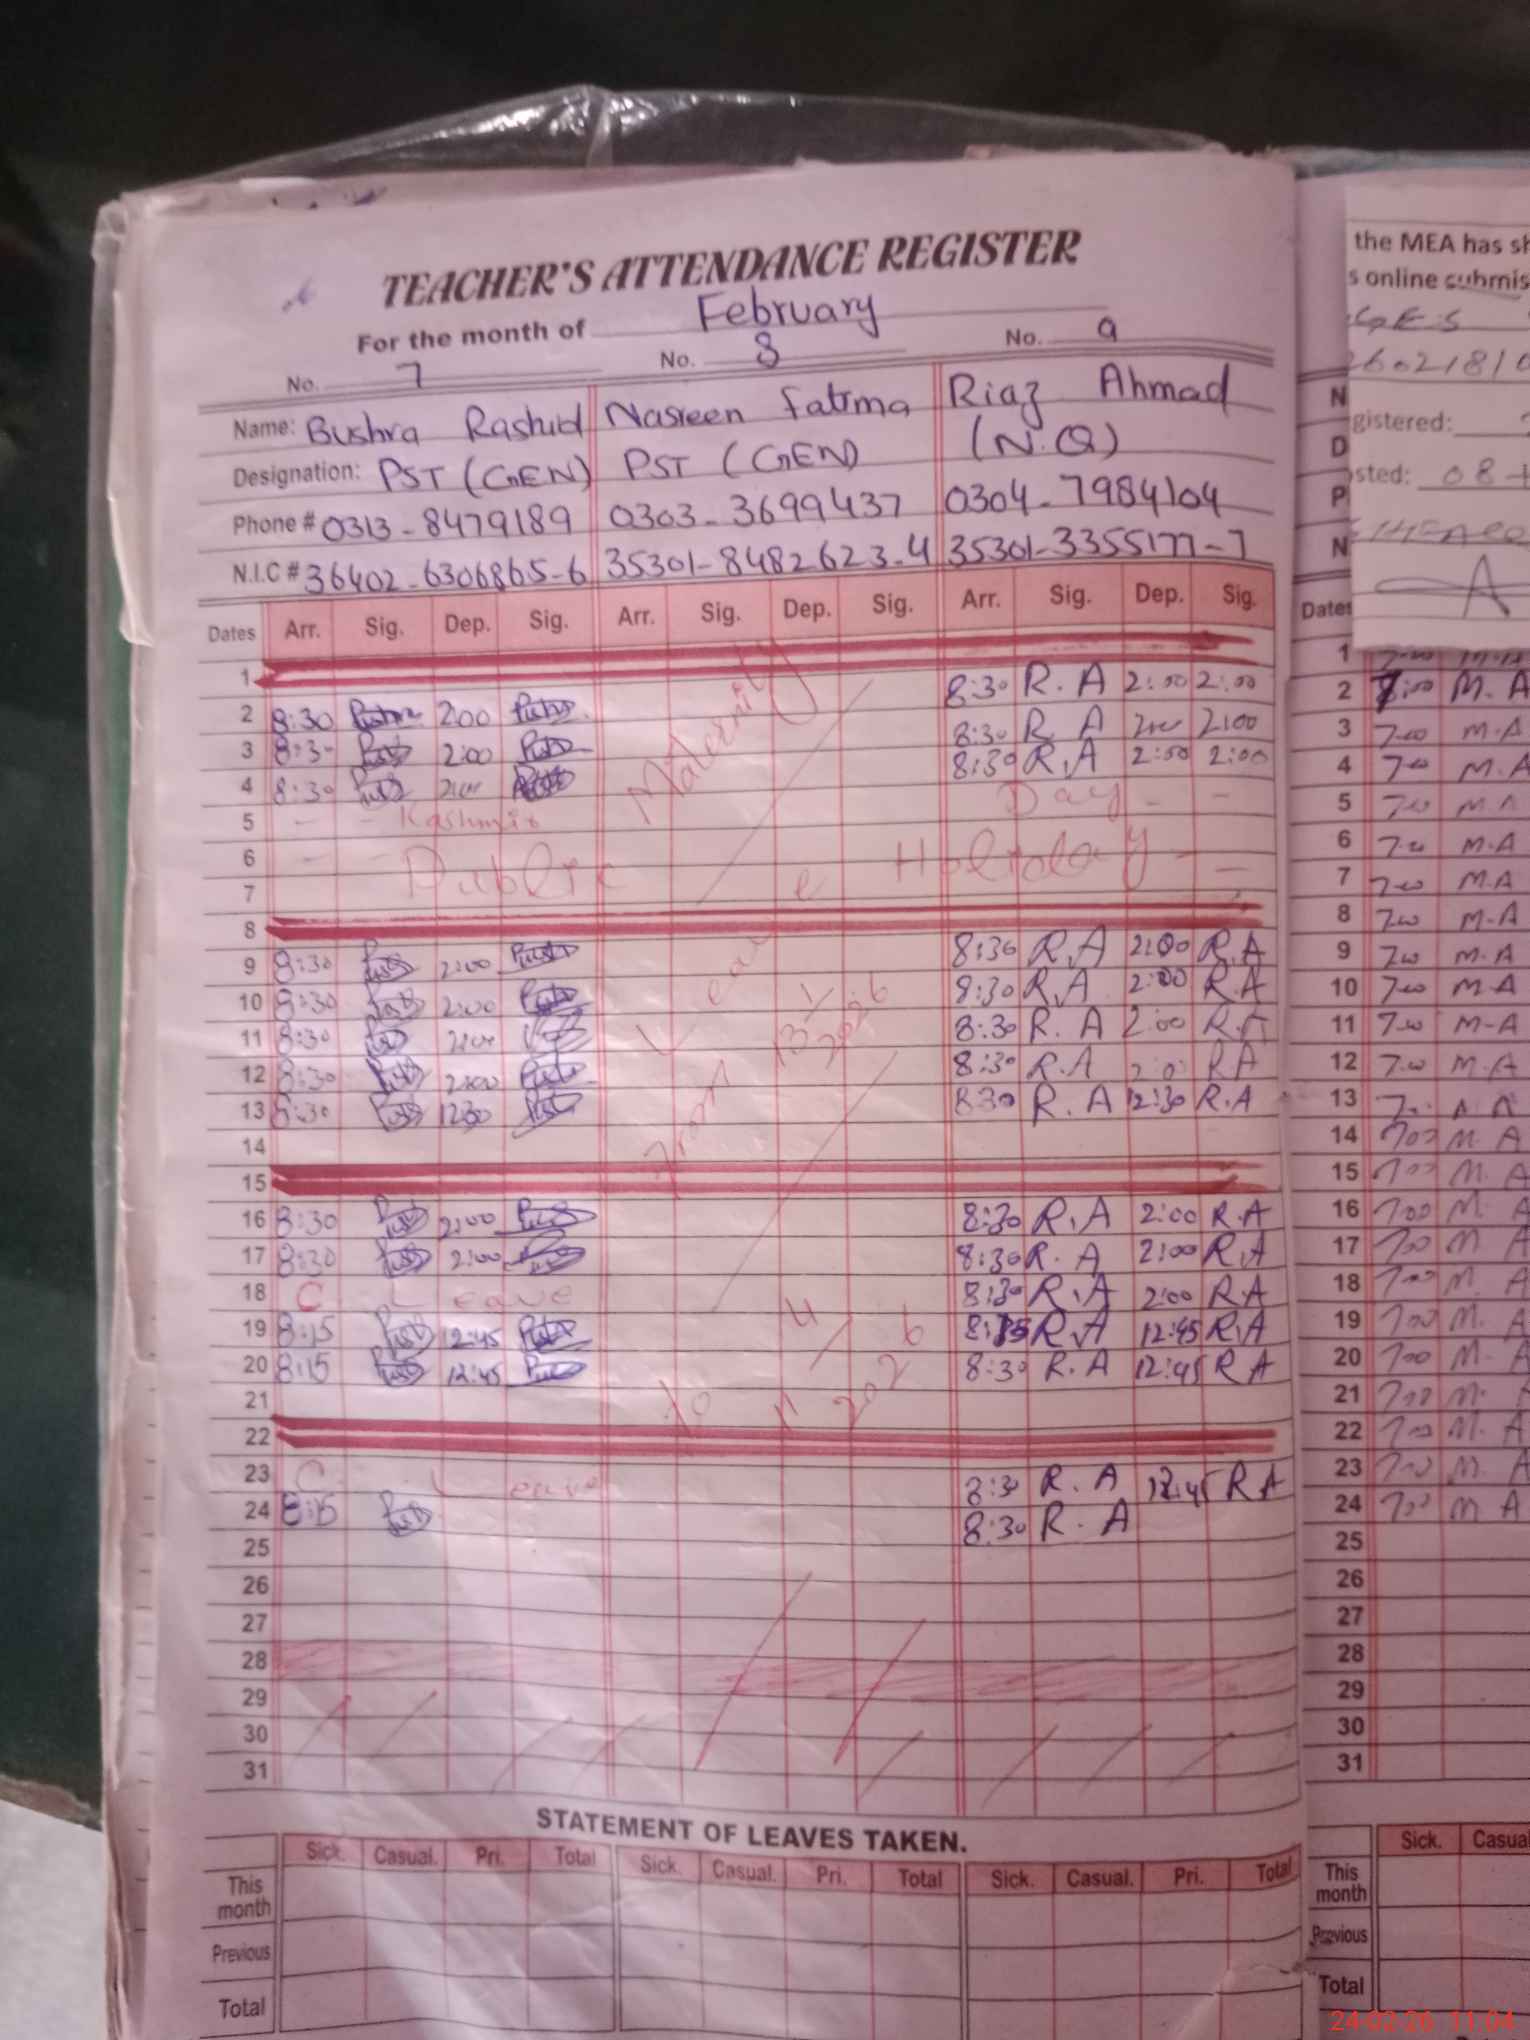 TEACHER'S ATTENDANCE REGISTER
For the month of February
No. 7 No. 8 No. 9
Name: Bushra Rashid Nasreen Fatima Riaz Ahmad
Designation: PST (GEN) PST (GEN) (N.Q)
Phone # 0313-8479189 0303-3699437 0304-7984104
N.I.C # 36402-6306865-6 35301-8482623-4 35301-3355177-7
Dates Arr. Sig. Dep. Sig. Arr. Sig. Dep. Sig. Arr. Sig. Dep. Sig.
1
2 8:30 2:00 8:30 R.A 2:00 2:00
3 8:30 2:00 8:30 R.A 2:00 2:00
4 8:30 2:00 8:30 R.A 2:00 2:00
5 - - Kashmir Day - -
6 - - Public Holiday -
7
8
9 8:30 2:00 8:30 R.A 2:00 R.A
10 8:30 2:00 8:30 R.A 2:00 R.A
11 8:30 2:00 8:30 R.A 2:00 R.A
12 8:30 2:00 8:30 R.A 2:0 RA
13 8:30 12:30 8:30 R.A 12:30 R.A
14
15
16 8:30 2:00 8:30 R.A 2:00 R.A
17 8:30 2:00 8:30 R.A 2:00 R.A
18 C Leave 8:30 R.A 2:00 RA
19 8:15 12:45 8:15 R.A 12:45 R.A
20 8:15 12:45 8:30 R.A 12:45 RA
21
22
23 C. Leave 8:30 R.A 12:45 RA
24 8:15 8:30 R.A
25
26
27
28
29
30
31
Maternity
Leave
From 13/1/2026
to 11/4/2026
STATEMENT OF LEAVES TAKEN.
Sick. Casual. Pri. Total Sick. Casual. Pri. Total Sick. Casual. Pri. Total
This month
Previous
Total
the MEA has
s online submis
gistered:
sted: 08
N
D
P
N
Dates
1 7:00 M.A
2 7:00 M.A
3 7:00 M.A
4 7:00 M.A
5 7:00 M.A
6 7:00 M.A
7 7:00 M.A
8 7:00 M-A
9 7:00 M.A
10 7:00 M-A
11 7:00 M-A
12 7:00 M.A
13
14 700 M.A
15 700 M.A
16 700 M.A
17 700 M.A
18 700 M.A
19 700 M.A
20 700 M.A
21 700 M.A
22 700 M.A
23 700 M.A
24 700 M.A
25
26
27
28
29
30
31
Sick. Casua
This month
Previous
Total
24-02-26 11:04